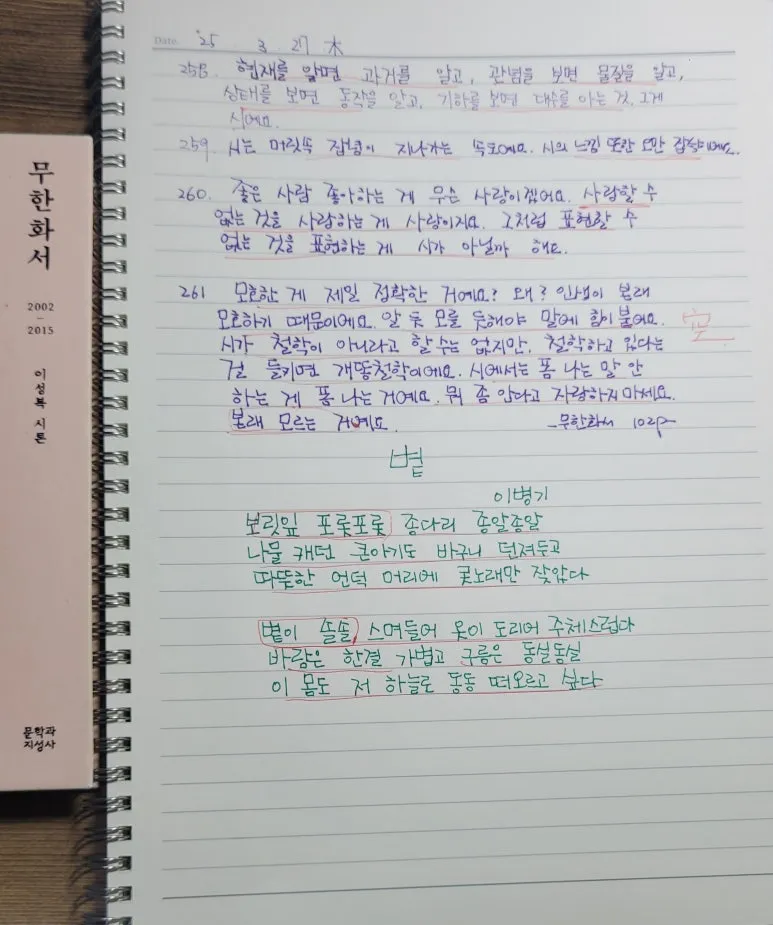 무한화서
2002
–
2015
이성복 시론
문학과
지성사
Date. '25 . 3 . 27 木
258. 현재를 알면 과거를 알고, 관념을 보면 물질을 알고,
상태를 보면 동작을 알고, 기하를 보면 대수를 아는 것, 그게
시예요.
259. 시는 머릿속 잡념이 지나가는 속도예요. 시의 느낌 또한 오만 잡탕이에요.
260. 좋은 사람 좋아하는 게 무슨 사랑이겠어요. 사랑할 수
없는 것을 사랑하는 게 사랑이지요. 그처럼 표현할 수
없는 것을 표현하는 게 시가 아닐까 해요.
261 모호한 게 제일 정확한 거예요? 왜? 인생이 본래
모호하기 때문이에요. 알 듯 모를 듯해야 말에 힘이 붙어요.
시가 철학이 아니라고 할 수는 없지만, 철학하고 있다는
걸 들키면 개똥철학이에요. 시에서는 폼 나는 말 안
하는 게 폼 나는 거예요. 뭐 좀 안다고 자랑하지 마세요.
본래 모르는 거예요. -무한화서 102p-
볕
이병기
보릿잎 포롯포롯 종다리 종알종알
나물 캐던 큰아기도 바구니 던져두고
따뜻한 언덕 머리에 콧노래만 잦았다
볕이 솔솔 스며들어 옷이 도리어 주체스럽다
바람은 한결 가볍고 구름은 동실동실
이 몸도 저 하늘로 동동 떠오르고 싶다